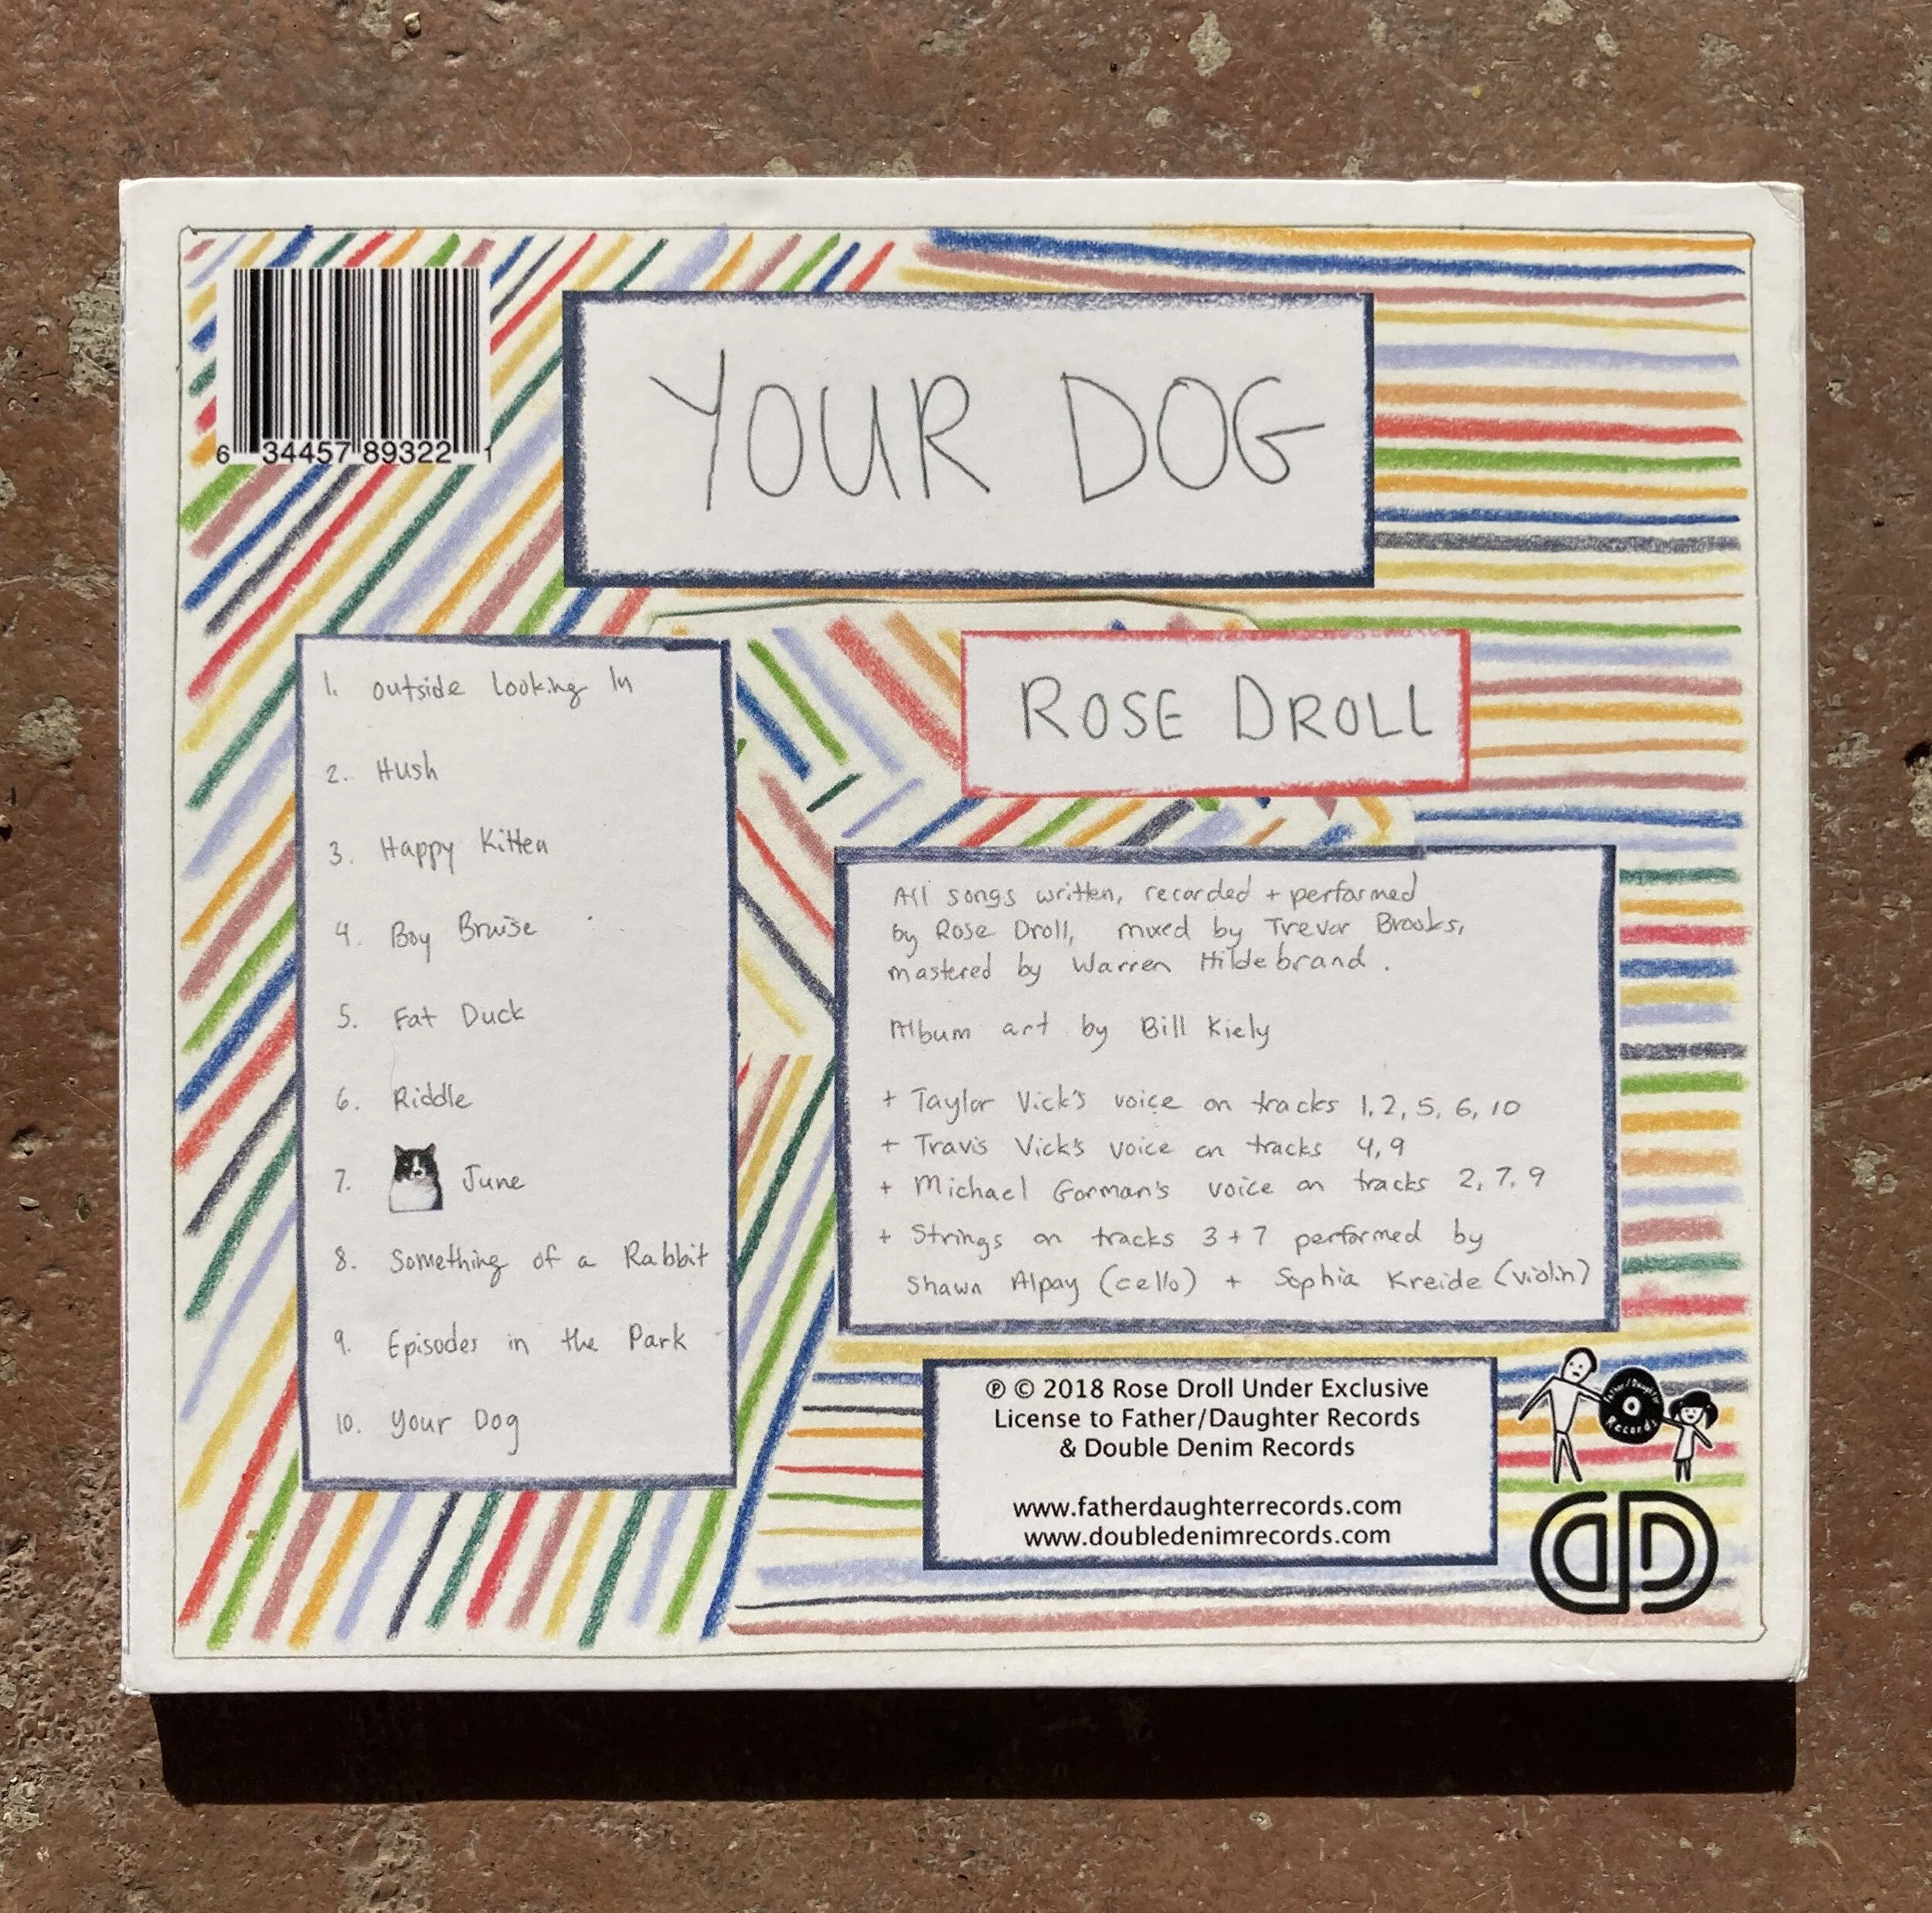 6 34457 89322 1
YOUR DOG
ROSE DROLL
1. Outside Looking In
2. Hush
3. Happy Kitten
4. Boy Bruise
5. Fat Duck
6. Riddle
7. June
8. Something of a Rabbit
9. Episodes in the Park
10. Your Dog
All songs written, recorded + performed
by Rose Droll, mixed by Trevor Brooks,
mastered by Warren Hildebrand.
Album art by Bill Kiely
+ Taylor Vick's voice on tracks 1, 2, 5, 6, 10
+ Travis Vick's voice on tracks 4, 9
+ Michael Gorman's voice on tracks 2, 7, 9
+ Strings on tracks 3 + 7 performed by
Shawn Alpay (cello) + Sophia Kreide (violin)
℗ © 2018 Rose Droll Under Exclusive
License to Father/Daughter Records
& Double Denim Records
www.fatherdaughterrecords.com
www.doubledenimrecords.com
Father/Daughter
Records